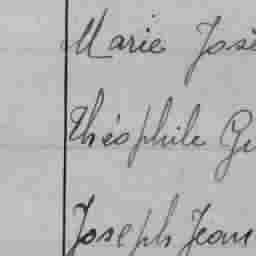 Marie José
Théophile Gu
Joseph Jean